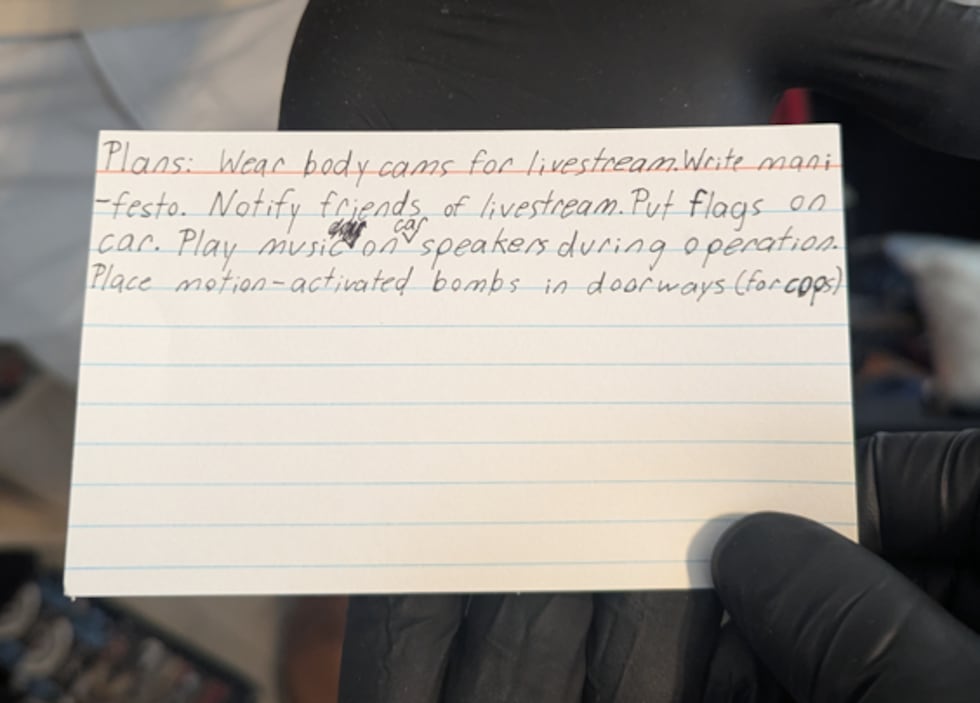 Plans: Wear body cams for livestream. Write mani
-festo. Notify friends of livestream. Put flags on
car
car. Play music on speakers during operation.
Place motion-activated bombs in doorways (for cops)